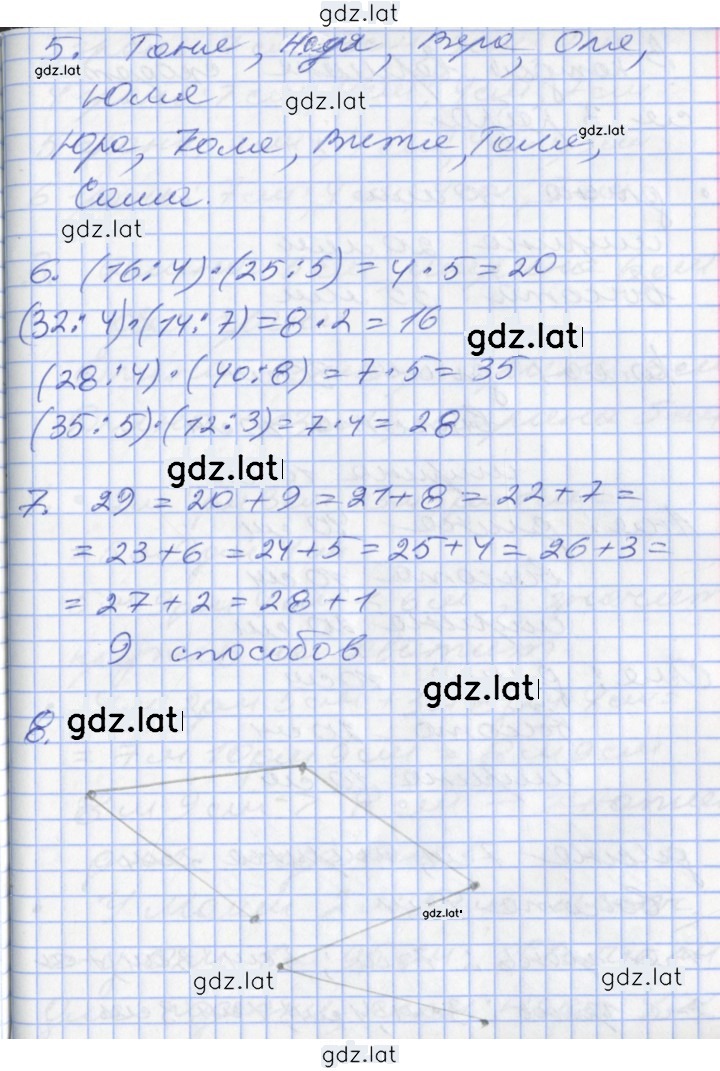 gdz.lat
5. Таня, Надя, Вера, Оля,
gdz.lat
Юлия
gdz.lat
gdz.lat
Юра, Коля, Витя, Толя,
Саша.
gdz.lat
6. (16:4)·(25:5) = 4·5 = 20
(32:4)·(14:7) = 8·2 = 16
gdz.lat
(28:4)·(40:8) = 7·5 = 35
(35:5)·(12:3) = 7·4 = 28
gdz.lat
7. 29 = 20+9 = 21+8 = 22+7 =
= 23+6 = 24+5 = 25+4 = 26+3 =
= 27+2 = 28+1
9 способов
gdz.lat
8. gdz.lat
gdz.lat
gdz.lat
gdz.lat
gdz.lat